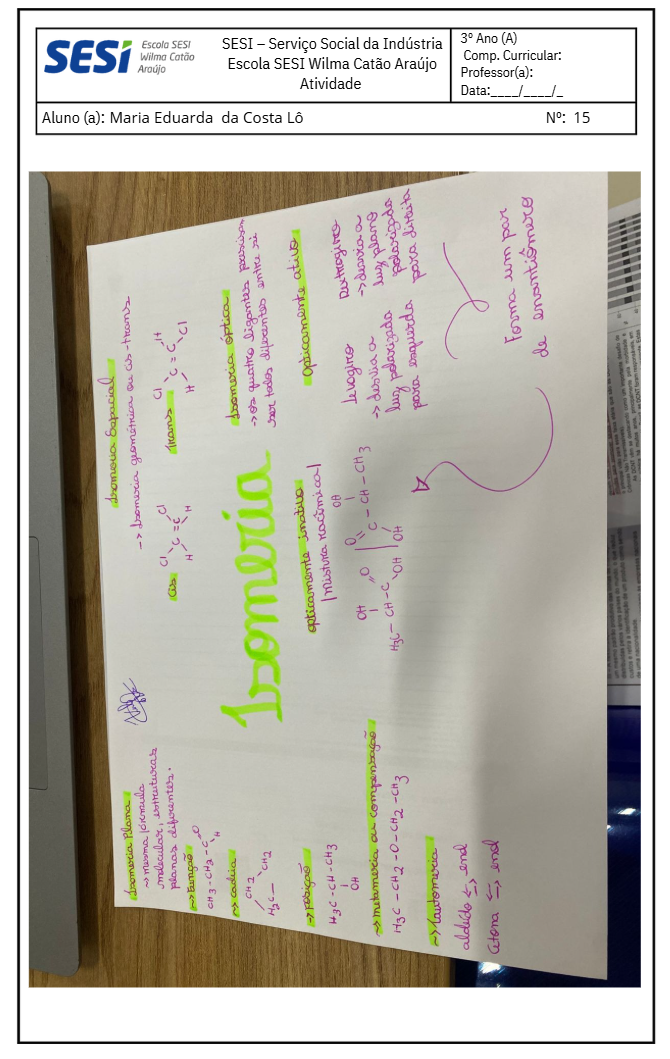 SESI
Escola SESI
Wilma Catão
Araújo
SESI – Serviço Social da Indústria
Escola SESI Wilma Catão Araújo
Atividade
3º Ano (A)
Comp. Curricular:
Professor(a):
Data:____/____/_
Aluno (a): Maria Eduarda da Costa Lô
Nº: 15
Isomeria Plana
→ mesma fórmula
molecular, estruturas
planas diferentes.
→ Função
CH3-CH2-C=O
H
→ cadeia
CH2
H2C— CH2
→ Posição
H3C-CH-CH3
OH
→ metameria ou compensação
H3C-CH2-O-CH2-CH3
→ tautomeria
aldeído ⇌ enol
cetona ⇌ enol
Isomeria
Isomeria Espacial
→ Isomeria geométrica ou cis-trans
cis
Cl Cl
C=C
H H
trans
Cl H
C=C
H Cl
Isomeria óptica
→ os quatro ligantes precisam
ser todos diferentes entre si
opticamente inativo
(mistura racêmica)
OH
H3C-CH-C=O
OH
O OH
C-CH-CH3
OH
Opticamente ativo
Levogiro
→ desvia a
luz polarizada
para esquerda
Dextrogiro
→ desvia a
luz plano
polarizada
para direita
Forma um par
de enantiômero